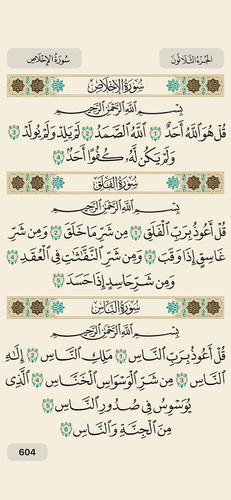 الجزء الثلاثون
سورة الإخلاص
سورة الإخلاص
بسم الله الرحمن الرحيم
قُلْ هُوَ ٱللَّهُ أَحَدٌ ١ ٱللَّهُ ٱلصَّمَدُ ٢ لَمْ يَلِدْ وَلَمْ يُولَدْ ٣
وَلَمْ يَكُن لَّهُۥ كُفُوًا أَحَدٌۢ ٤
سورة الفلق
بسم الله الرحمن الرحيم
قُلْ أَعُوذُ بِرَبِّ ٱلْفَلَقِ ١ مِن شَرِّ مَا خَلَقَ ٢ وَمِن شَرِّ
غَاسِقٍ إِذَا وَقَبَ ٣ وَمِن شَرِّ ٱلنَّفَّـٰثَـٰتِ فِى ٱلْعُقَدِ ٤
وَمِن شَرِّ حَاسِدٍ إِذَا حَسَدَ ٥
سورة الناس
بسم الله الرحمن الرحيم
قُلْ أَعُوذُ بِرَبِّ ٱلنَّاسِ ١ مَلِكِ ٱلنَّاسِ ٢ إِلَـٰهِ
ٱلنَّاسِ ٣ مِن شَرِّ ٱلْوَسْوَاسِ ٱلْخَنَّاسِ ٤ ٱلَّذِى
يُوَسْوِسُ فِى صُدُورِ ٱلنَّاسِ ٥
مِنَ ٱلْجِنَّةِ وَٱلنَّاسِ ٦
604